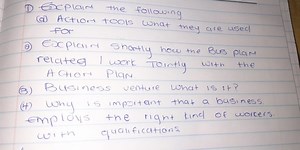 ① Explain the following
(a) Action tools what they are used
for
② Explain shortly how the Bus plan
related / work jointly with the
Action Plan
③ Business venture what is it?
(4) Why is important that a business
Employs the right kind of workers
with qualifications